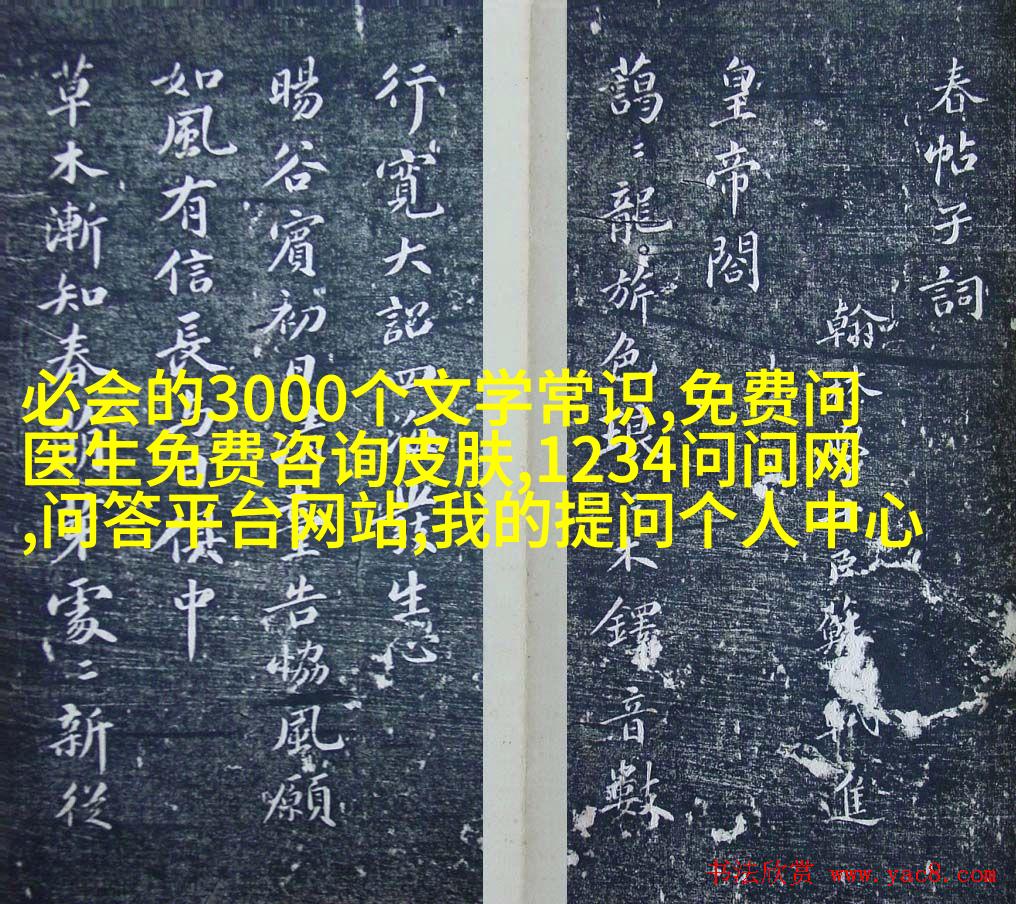 春帖子詞
翰林臣蘇軾進
皇帝閤
藹〻龍旂色琅木鐸音數
行寬大詔四生心
暘谷賓初日告協風願
如風有信長與日俱中
草木漸知春萌芽處〻新從
必会的3000个文学常识,免费问
医生免费咨询皮肤,1234问问网
,问答平台网站,我的提问个人中心
书法欣赏 www.yac8.com